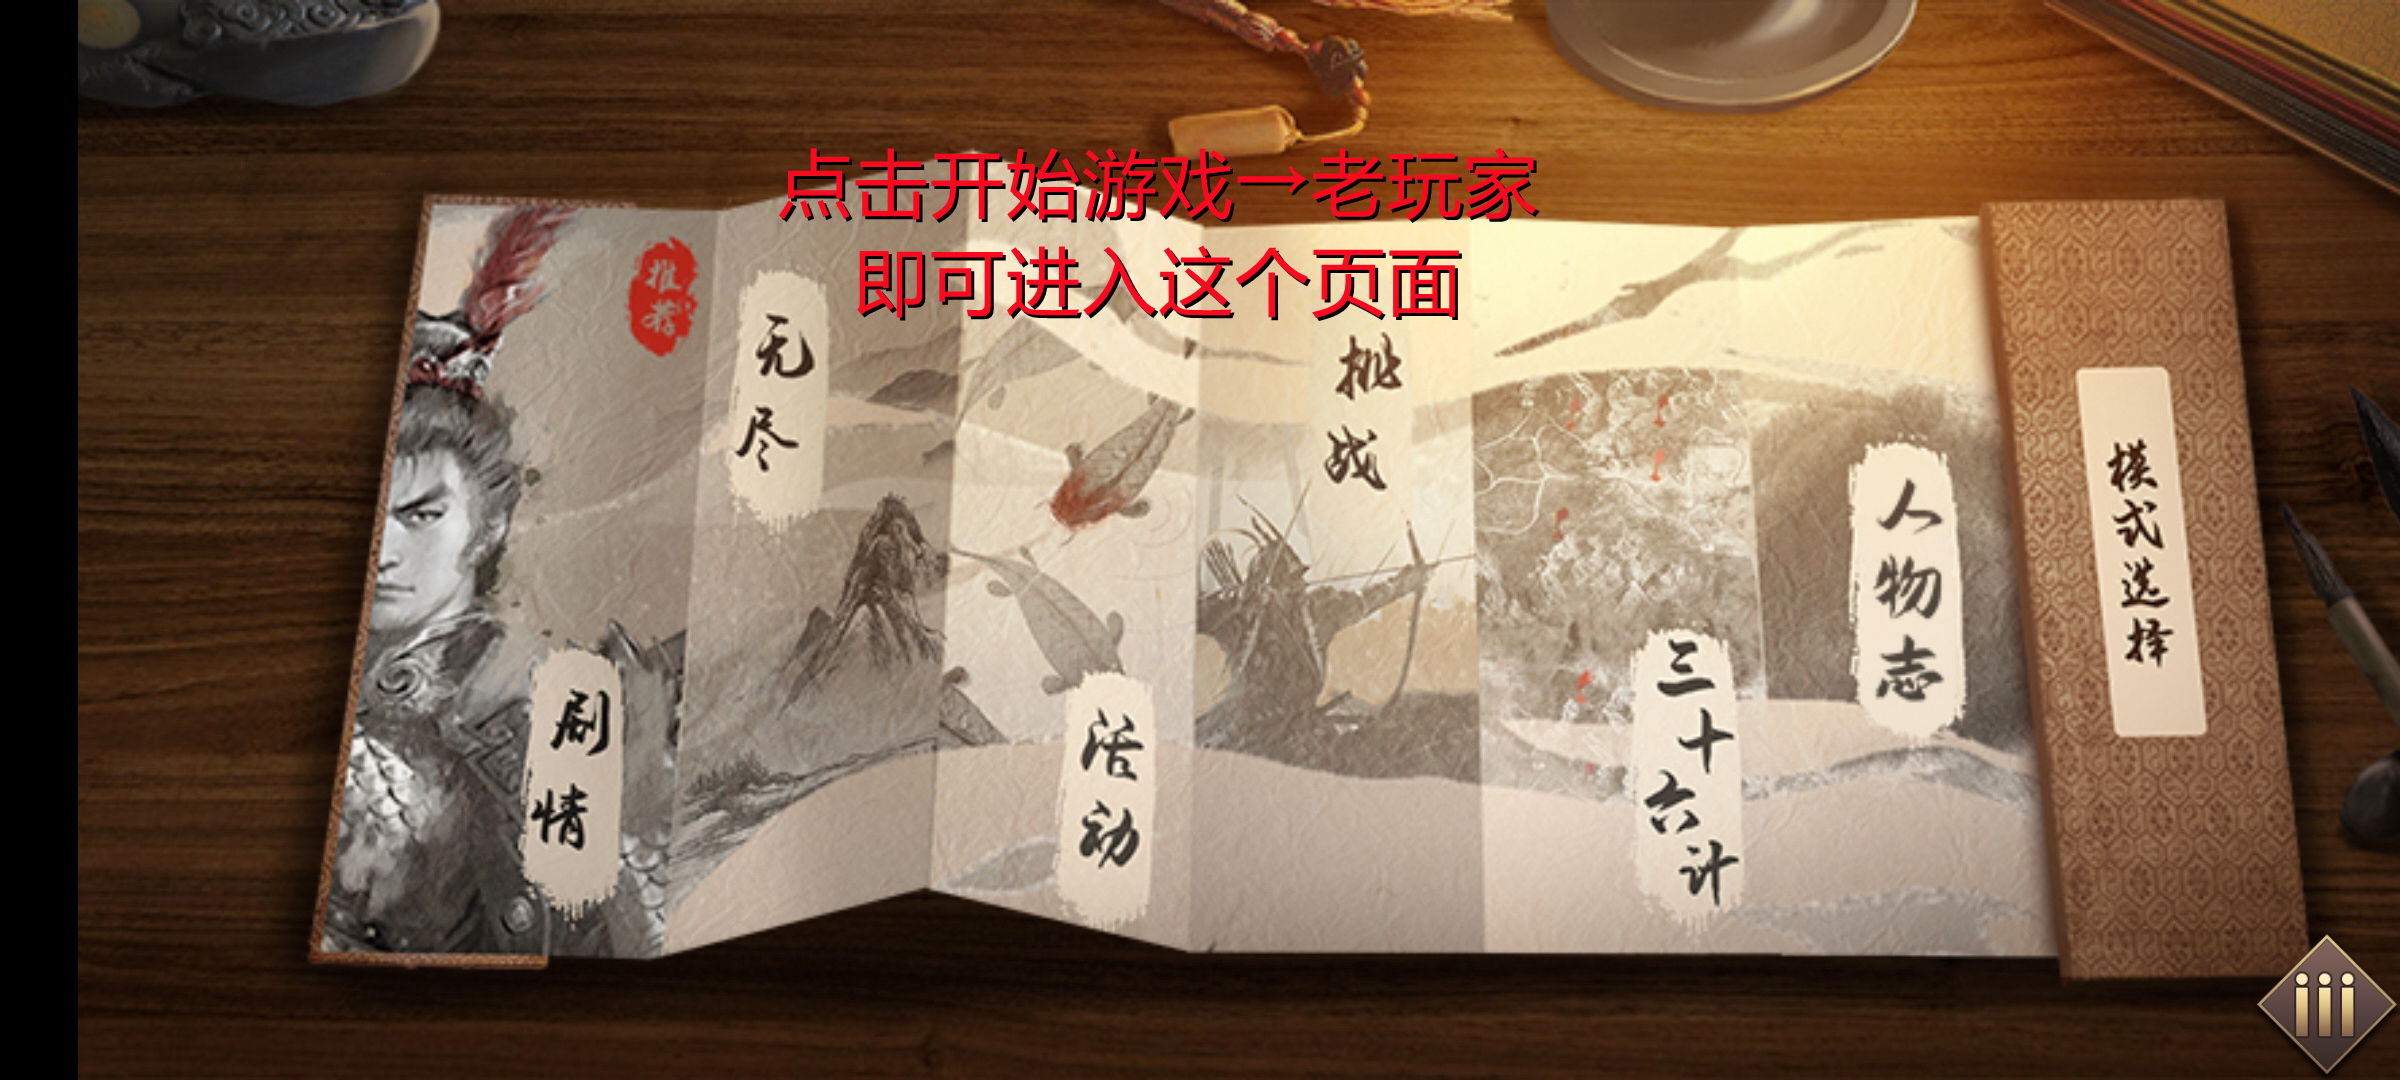 点击开始游戏→老玩家
即可进入这个页面
推荐
剧情
无尽
活动
挑战
三十六计
人物志
模式选择